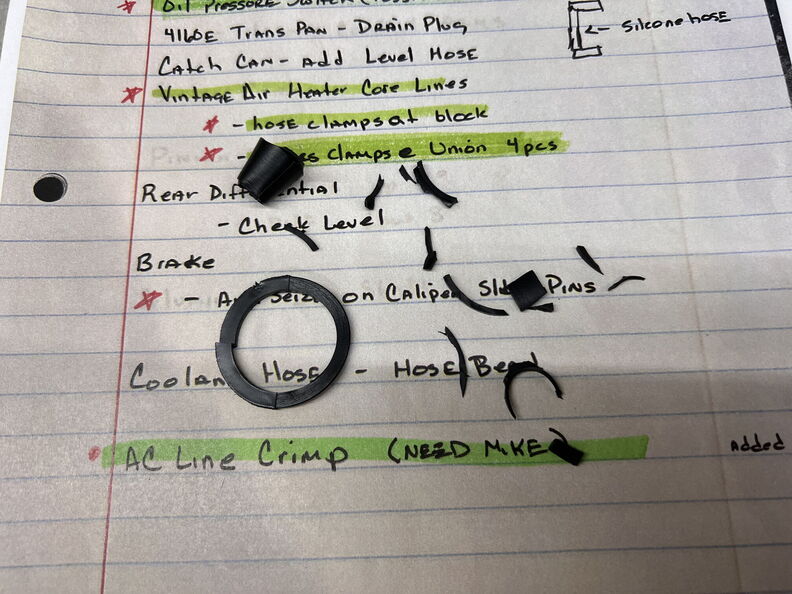 Oil Pressure Switch
Silicone hose
4160E Trans Pan - Drain Plug
Catch Can - Add Level Hose
Vintage Air Heater Core Lines
- hose clamps at block
- Clamps @ Union 4pcs
Rear Differential
- Check Level
Brake
- Anti Seize on Caliper Slide Pins
Coolant Hose - Hose Bead
AC Line Crimp (NEED MIKE
Added